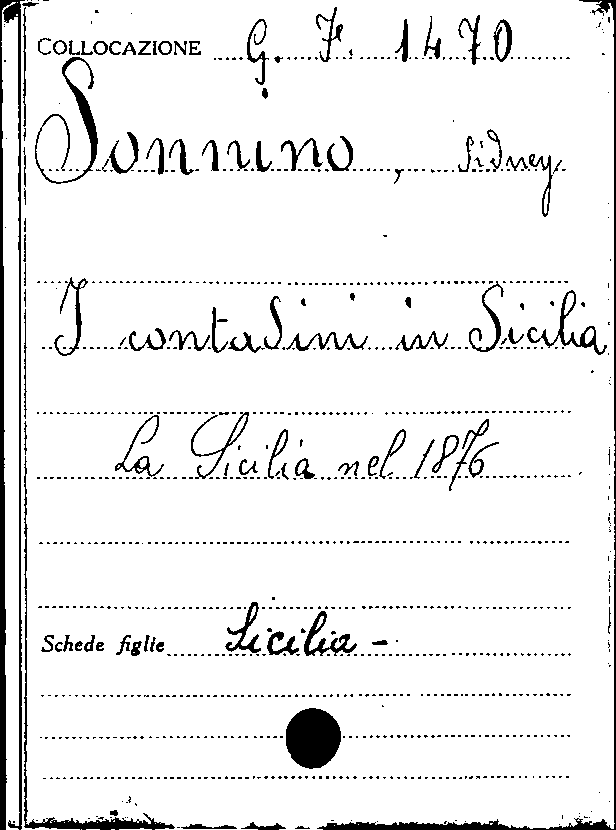 COLLOCAZIONE G. F. 1470
Sonnino, Sidney
I contadini in Sicilia
La Sicilia nel 1876
Schede figlie Sicilia -